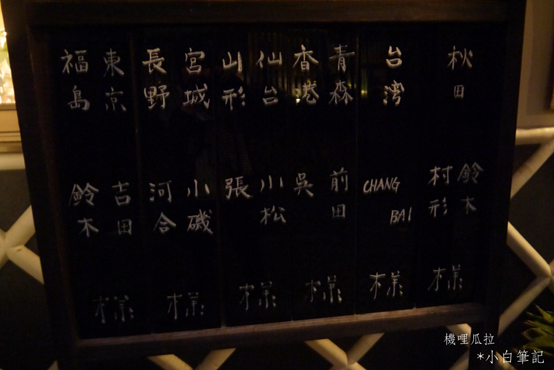 秋田
鈴木
村形
様
台湾
CHANG
BAI
様
青森
香港
前田
吳
様
仙台
山形
小松
張
様
宮城
長野
小磯
河合
様
東京
福島
吉田
鈴木
様
機哩瓜拉
*小白筆記